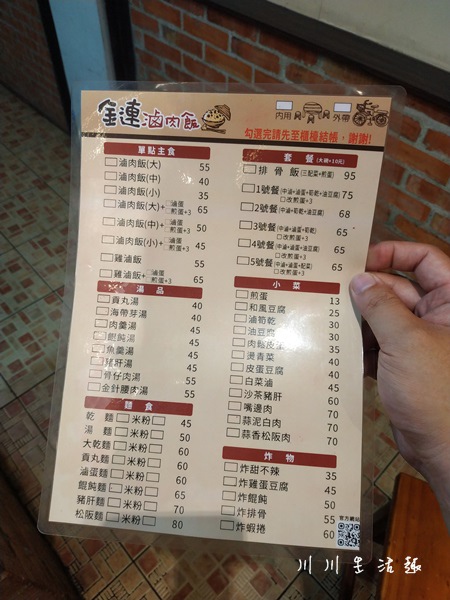 金連滷肉飯
內用 外帶
勾選完請先至櫃檯結帳，謝謝!
單點主食
滷肉飯(大) 55
滷肉飯(中) 40
滷肉飯(小) 35
滷肉飯(大)+ 滷蛋 煎蛋+3 65
滷肉飯(中)+ 滷蛋 煎蛋+3 50
滷肉飯(小)+ 滷蛋 煎蛋+3 45
雞滷飯 55
雞滷飯+ 滷蛋 煎蛋+3 65
湯品
貢丸湯 40
海帶芽湯 40
肉羹湯 45
餛飩湯 45
魚羹湯 45
豬肝湯
骨仔肉湯 55
金針腰肉湯 55
麵食
乾麵 米粉 45
湯麵 米粉 50
大乾麵 米粉 60
貢丸麵 米粉 60
滷蛋麵 米粉 60
餛飩麵 米粉 65
豬肝麵 米粉 70
松阪麵 米粉 80
套餐(大碗+10元)
排骨飯(三配菜+煎蛋) 95
1號餐(中滷+滷蛋+筍乾+油豆腐) 75
改煎蛋+3
2號餐(中滷+筍乾+油豆腐) 68
3號餐(中滷+滷蛋+筍乾) 65
改煎蛋+3
4號餐(中滷+滷蛋+油豆腐) 65
改煎蛋+3
5號餐(中滷+滷蛋+配菜) 65
改煎蛋+3
小菜
煎蛋 13
和風豆腐 25
滷筍乾 30
油豆腐 30
肉鬆皮蛋 35
燙青菜 40
皮蛋豆腐 40
白菜滷 45
沙茶豬肝 60
嘴邊肉 70
蒜泥白肉 70
蒜香松阪肉 70
炸物
炸甜不辣 35
炸雞蛋豆腐 45
炸餛飩 50
炸排骨 55
炸蝦捲 60
官方網站
川川生活趣